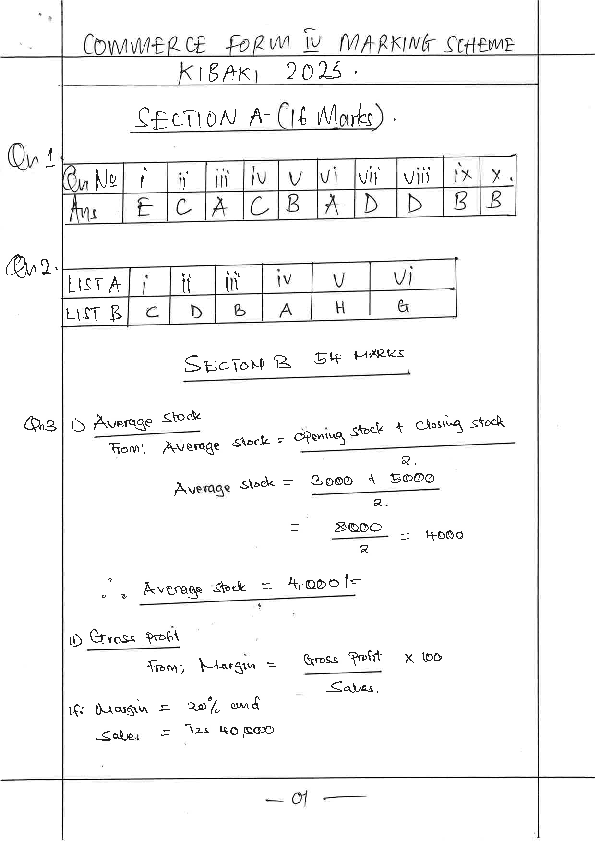 COMMERCE FORM IV MARKING SCHEME
KIBAKI 2025.
SECTION A-(16 Marks).
Qn 1
Qn No i ii iii iv v vi vii viii ix x.
Ans E C A C B A D D B B
Qn 2.
LIST A i ii iii iv v vi
LIST B C D B A H G
SECTON B 54 MARKS
Qn3 i) Average stock
From: Average stock = opening stock + closing stock
2.
Average stock = 3000 + 5000
2.
= 8000
2 = 4000
∴ Average stock = 4,000/=
ii) Gross profit
From; Margin = Gross Profit × 100
Sales.
If: Margin = 20% and
Sales = Tzs 40,000
— 01 —